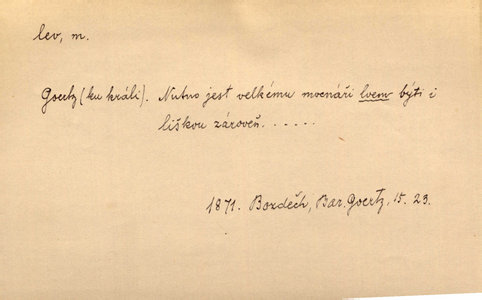 lev, m.
Goertz (ku králi). Nutno jest velkému mocnáři lvem býti i
liškou zároveň. . . . . .
1871. Bozděch, Bar. Goertz, 15. 23.